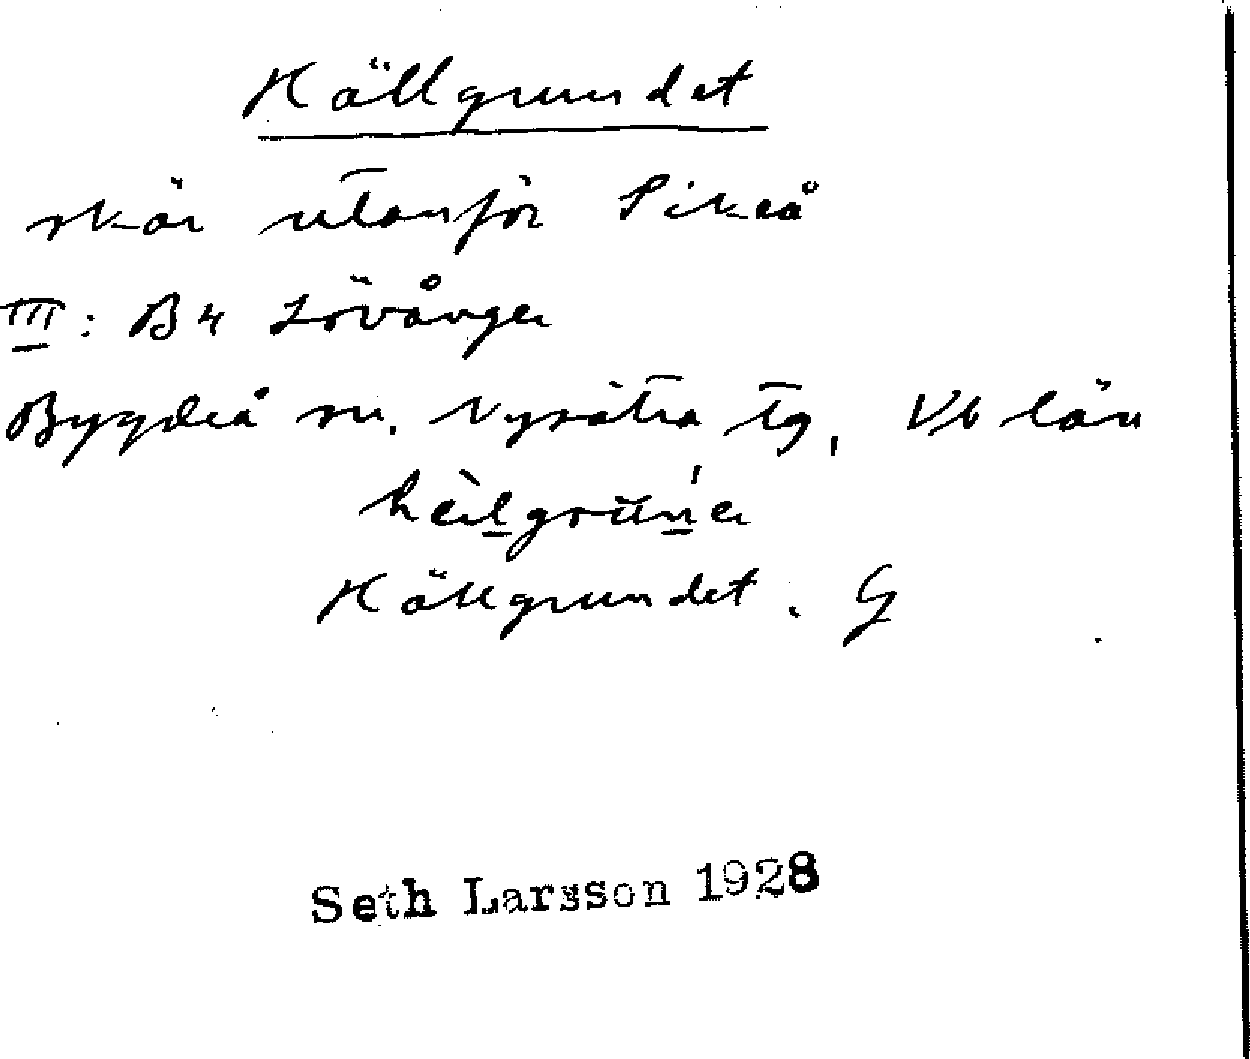 Källgrundet
skär utanför Sikeå
III: B4 Lövånger
Bygdeå sn. Nysätra tg, Vb län
Källgrundet. G
Seth Larsson 1928